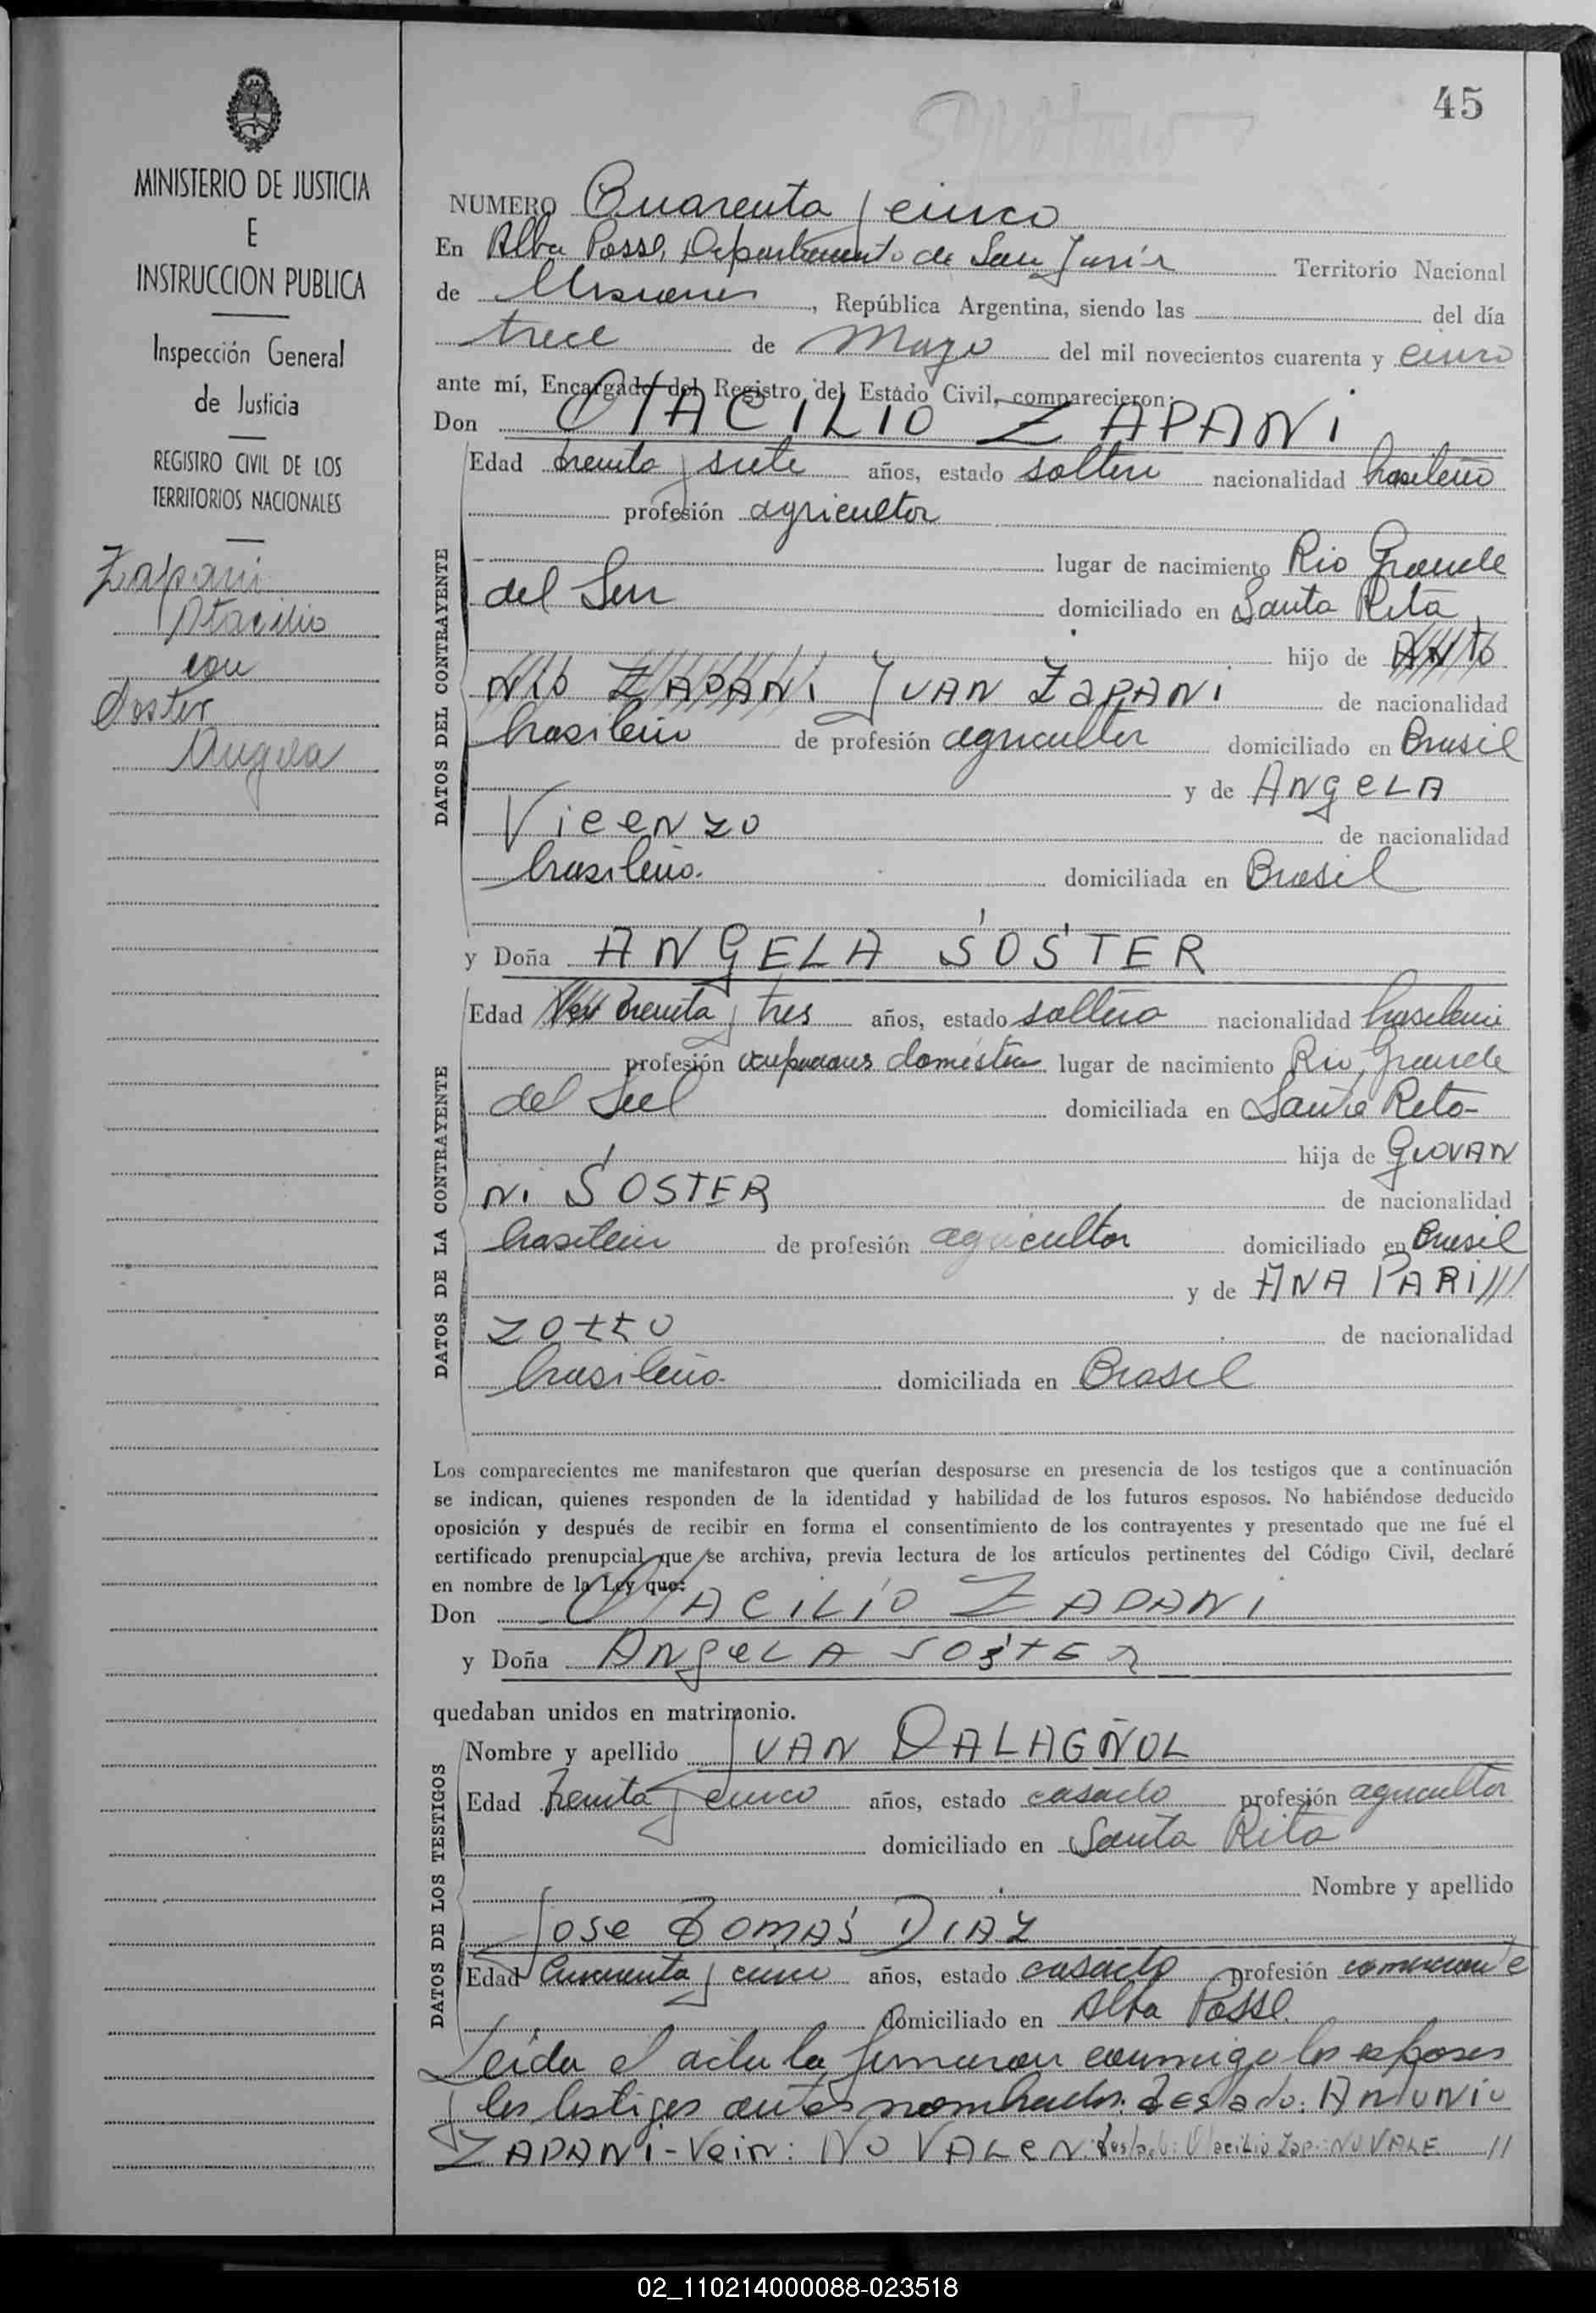 45
MINISTERIO DE JUSTICIA
E
INSTRUCCION PUBLICA
Inspección General
de Justicia
REGISTRO CIVIL DE LOS
TERRITORIOS NACIONALES
Zapani
Otacilio
con
Soster
Angela
NUMERO Cuarenta y cinco
En Alba Posse, Departamento de San Javier Territorio Nacional
de Misiones, República Argentina, siendo las del día
trece de Mayo del mil novecientos cuarenta y cinco
ante mí, Encargado del Registro del Estado Civil, comparecieron:
Don OTACILIO ZAPANI
DATOS DEL CONTRAYENTE
Edad treinta y siete años, estado soltero nacionalidad brasileño
profesión agricultor
lugar de nacimiento Rio Grande
del Sur domiciliado en Santa Rita
hijo de ANTO
NIO ZAPANI JUAN ZAPANI de nacionalidad
brasileño de profesión agricultor domiciliado en Brasil
y de ANGELA
Vicenzo de nacionalidad
brasileña. domiciliada en Brasil
y Doña ANGELA SOSTER
DATOS DE LA CONTRAYENTE
Edad treinta y tres años, estado soltera nacionalidad brasileña
profesión ocupaciones domésticas lugar de nacimiento Rio Grande
del Sul domiciliada en Santa Rita
hija de GIOVAN
NI SOSTER de nacionalidad
brasileño de profesión agricultor domiciliado en Brasil
y de ANA PARI///
ZOTTO de nacionalidad
brasileña domiciliada en Brasil
Los comparecientes me manifestaron que querían desposarse en presencia de los testigos que a continuación
se indican, quienes responden de la identidad y habilidad de los futuros esposos. No habiéndose deducido
oposición y después de recibir en forma el consentimiento de los contrayentes y presentado que me fué el
certificado prenupcial que se archiva, previa lectura de los artículos pertinentes del Código Civil, declaré
en nombre de la Ley que:
Don OTACILIO ZAPANI
y Doña ANGELA SOSTER
quedaban unidos en matrimonio.
DATOS DE LOS TESTIGOS
Nombre y apellido JUAN DALAGÑOL
Edad treinta y cinco años, estado casado profesión agricultor
domiciliado en Santa Rita
Nombre y apellido
Jose TOMAS DIAZ
Edad Cincuenta y cinco años, estado casado profesión comerciante
domiciliado en Alba Posse.
Leída el acta la firmaron conmigo los esposos
y los testigos antes nombrados. Testado: ANTONIO
ZAPANI - Vein: NO VALEN. Testado: Otacilio Zap: NO VALE //
02_110214000088-023518